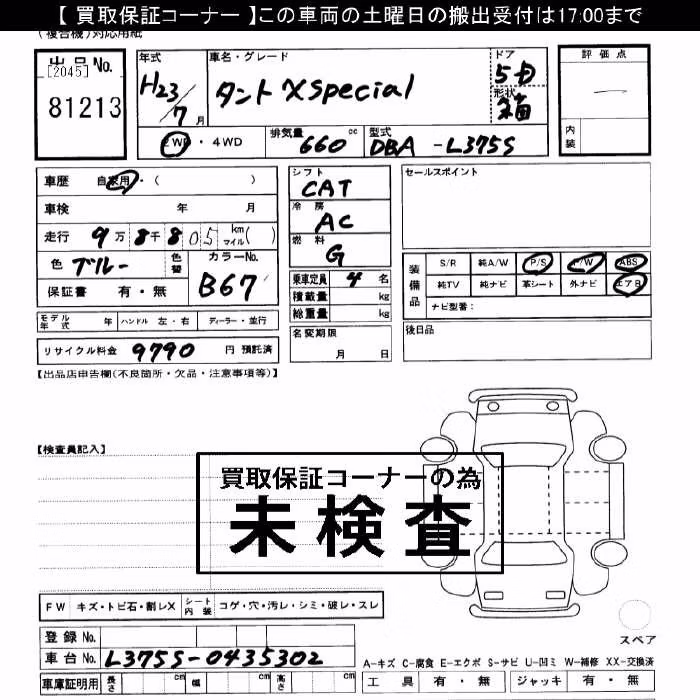 【 買取保証コーナー 】この車両の土曜日の搬出受付は17:00まで
(複合機)対応用紙
出品No.
[2045]
81213
年式
H23/7月
車名・グレード
タント XSpecial
ドア
5D
形状
箱
評価点
—
内装
2WD・4WD
排気量 660 cc
型式 DBA -L375S
車歴 自家用・( )
車検 年 月
走行 9万8千805 km マイル( )
色 ブルー
色替
カラーNo.
B67
保証書 有・無
シフト
CAT
冷房
AC
燃料
G
乗車定員 4 名
積載量 kg
総重量 kg
名変期限
月 日
セールスポイント
装備品
S/R 純A/W P/S P/W ABS
純TV 純ナビ 革シート 外ナビ エアB
ナビ型番:
後日品
モデル年式 年 ハンドル 左・右 ディーラー・並行
リサイクル料金 9790 円 預託済
【出品店申告欄(不良箇所・欠品・注意事項等)】
【検査員記入】
買取保証コーナーの為
未検査
FW キズ・トビ石・割レX シート内装 コゲ・穴・汚レ・シミ・破レ・スレ
スペア
登録No.
車台No. L375S-0435302
車庫証明用 長さ cm 幅 cm 高さ cm
A-キズ C-腐食 E-エクボ S-サビ U-凹ミ W-補修 XX-交換済
工具 有・無 ジャッキ 有・無